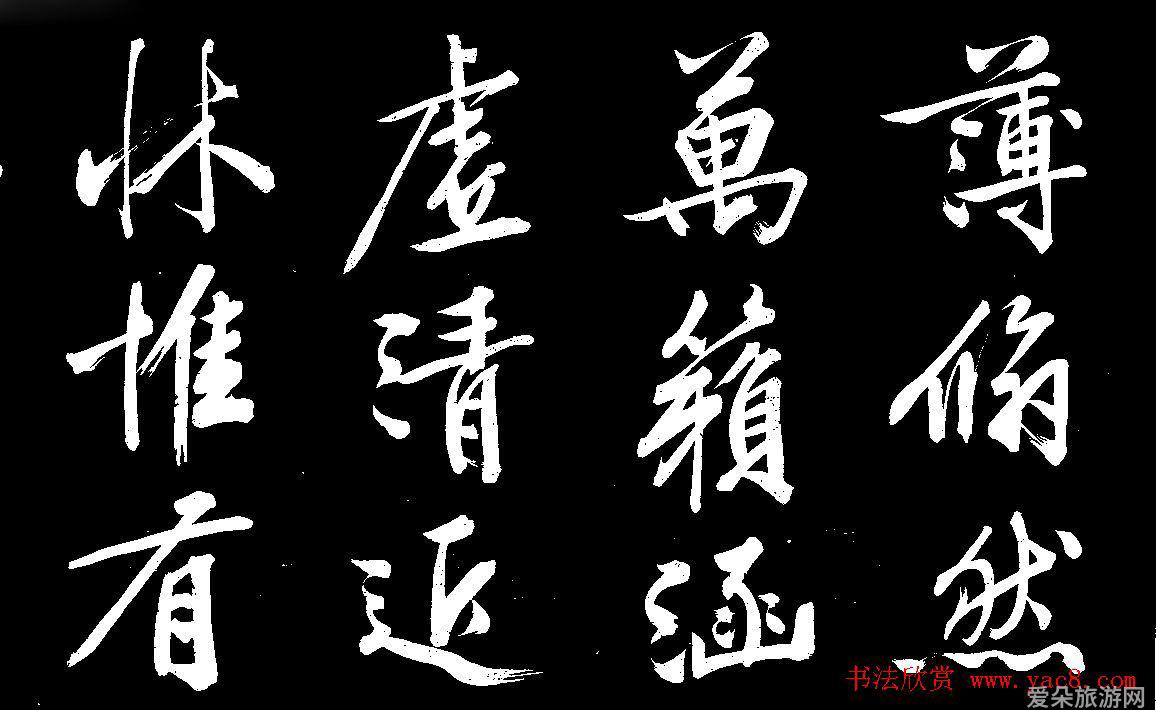 薄翛然
萬籟涵
虛清近
牀惟有
书法欣赏 www.yac8.com
爱朵旅游网